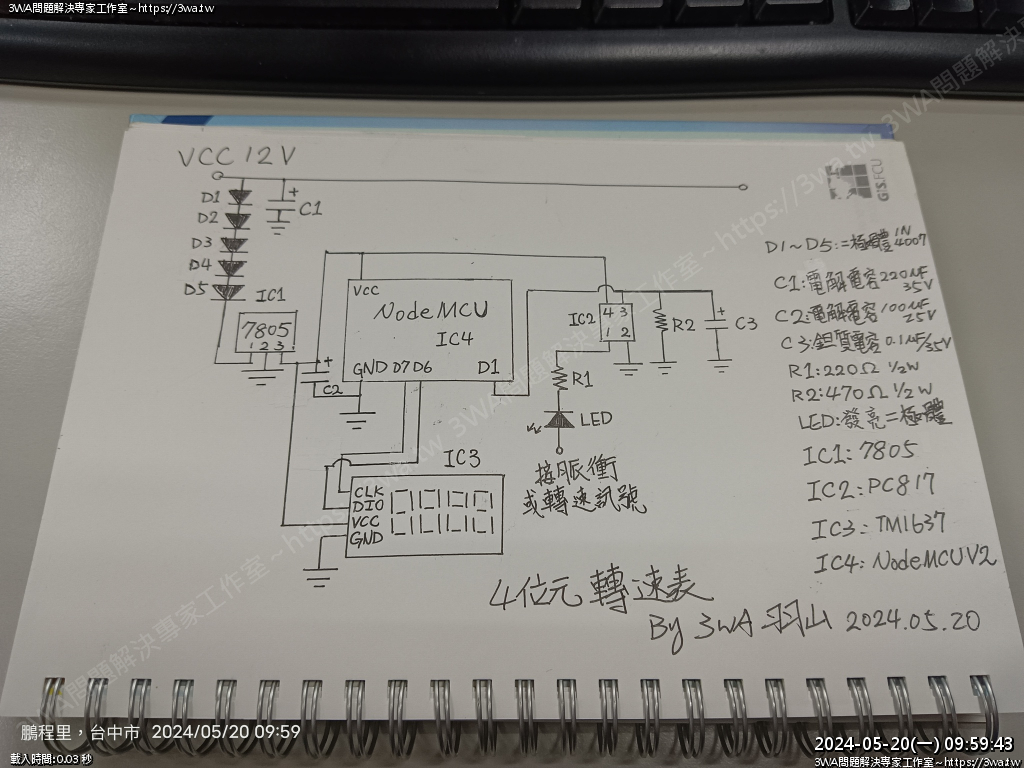 3WA問題解決專家工作室~https://3wa.tw
3WA問題解決專家工作室~https://3wa.tw
GIS.FCU
VCC 12V
D1
D2
D3
D4
D5
+
C1
IC1
7805
1 2 3
+
C2
VCC
NodeMCU
IC4
GND D7 D6 D1
IC2
4 3
1 2
R2
+
C3
R1
LED
接脈衝
或轉速訊號
IC3
CLK
DIO
VCC
GND
D1~D5:二極體 1N4007
C1:電解電容 220uF 35V
C2:電解電容 100uF 25V
C3:鉭質電容 0.1uF/35V
R1:220Ω 1/2W
R2:470Ω 1/2W
LED:發亮二極體
IC1:7805
IC2:PC817
IC3:TM1637
IC4:NodeMCUV2
4位元轉速表
By 3WA 羽山 2024.05.20
鵬程里,台中市 2024/05/20 09:59
載入時間:0.03 秒
2024-05-20(一) 09:59:43
3WA問題解決專家工作室~https://3wa.tw